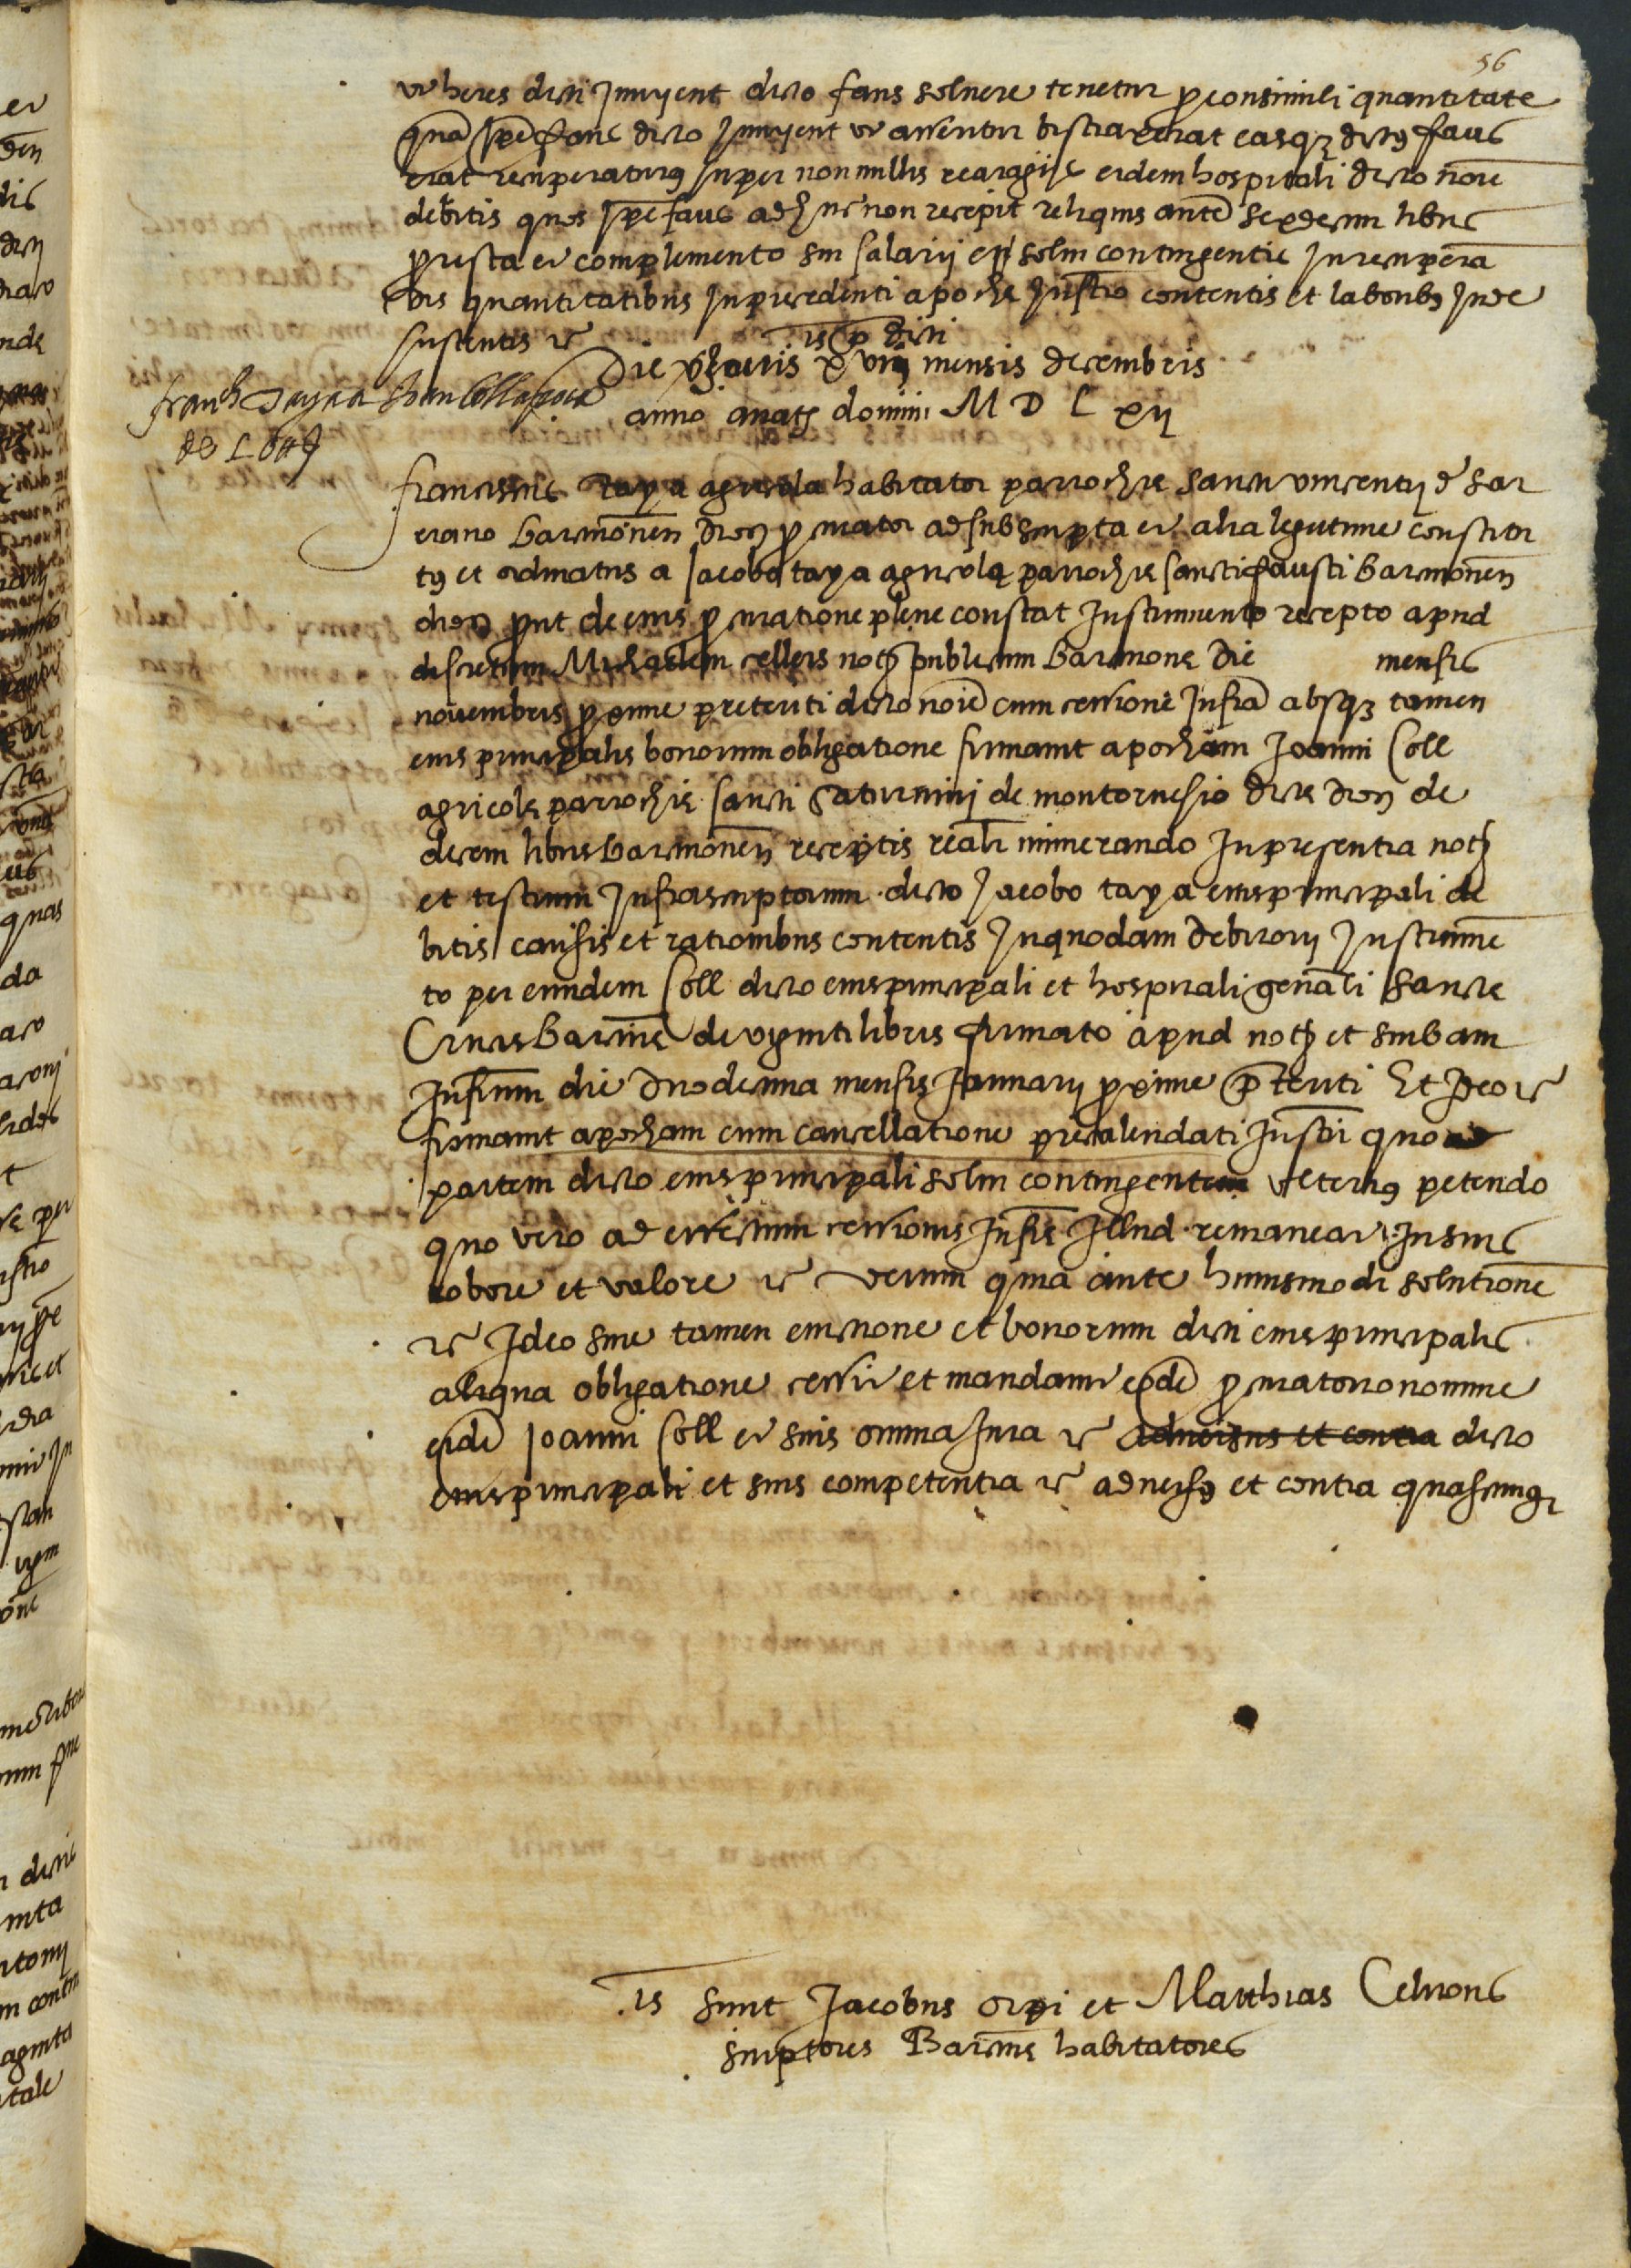 56
ut heres dicti Junyent dicto faus solvere tenetur pro consimili quantitate
quam ipse faus dicto Junyent ut arrentator bistraxerat easq3 dictus faus
erat recuperaturus super nonnullis rearagiis eidem hospitali dicto noie
debitis quos ipse faus adhuc non recepit reliquis autem sexdecim libris
pro resta et complemento sui salarii ei solm contingentis in recupera
dis quantitatibus in precedenti apocha Instro contentis et laboribus inde
sustentis etc
ts pdicti
Die Jovis xvii mensis decembris
anno a nat domini M D L xii
franch Tayaa Joan Coll apoca
de L
franciscus taya agricola habitator parrochie sancti vincentii de Sar
erano barcinonen dioc procurator ad subscripta et alia legittime constitu
tus et ordinatus a Jacobo taya agricola parrochie sancti fausti barcinonen
dioc prout de eius procuratione plene constat Instrumento recepto apud
discretum Michaelem cellers not publicum barcinone die mensis
novembris proxime preteriti dicto noie cum cessione infra absq3 tamen
eius principalis bonorum obligatione firmavit apocham Joanni Coll
agricole parrochie sancti Saturnini de montornesio dicte dioc de
decem libris barcinonen receptis realr numerando In presentia not
et testium Infrascriptorum dicto Jacobo taya eius principali de
bitis causis et rationibus contentis In quodam debitorii Instrumen
to per eumdem Coll dicto eius principali et hospitali generali Sancte
Crucis barcine de viginti libris firmato apud not et scribam
Infrum die duodecima mensis Januarii proxime preteriti Et Ideo etc
firmavit apocham cum cancellatione precalendati Instri quo ad
partem dicto eius principali solm contingentem ulterius petendo
quo vero ad effectum cessionis Infre Illud remaneat In suis
robore et valore etc verum quia ante huiusmodi solutionem
etc Ideo sine tamen evictione et bonorum dicti eius principalis
aliqua obligatione cessit et mandavit eodem procuratorio nomine
eidem Joanni Coll et suis omnia Jura etc adversus et contra dicto
eius principali et suis competentia etc adversus et contra quascunq3
ts sunt Jacobus orpi et Matthias Celrons
scriptores Barcine habitatores